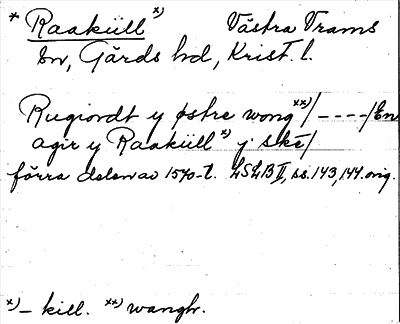 * Raakiill *) Västra Vrams
sn, Gärds hd, Krist. l.
Rugiordt y østre wong **)/ ----/En
agir y Raakiill *) j skē/
förra delen av 1570-t. LSLB II, ss. 143, 144. orig.
*) – kill. **) wangh.